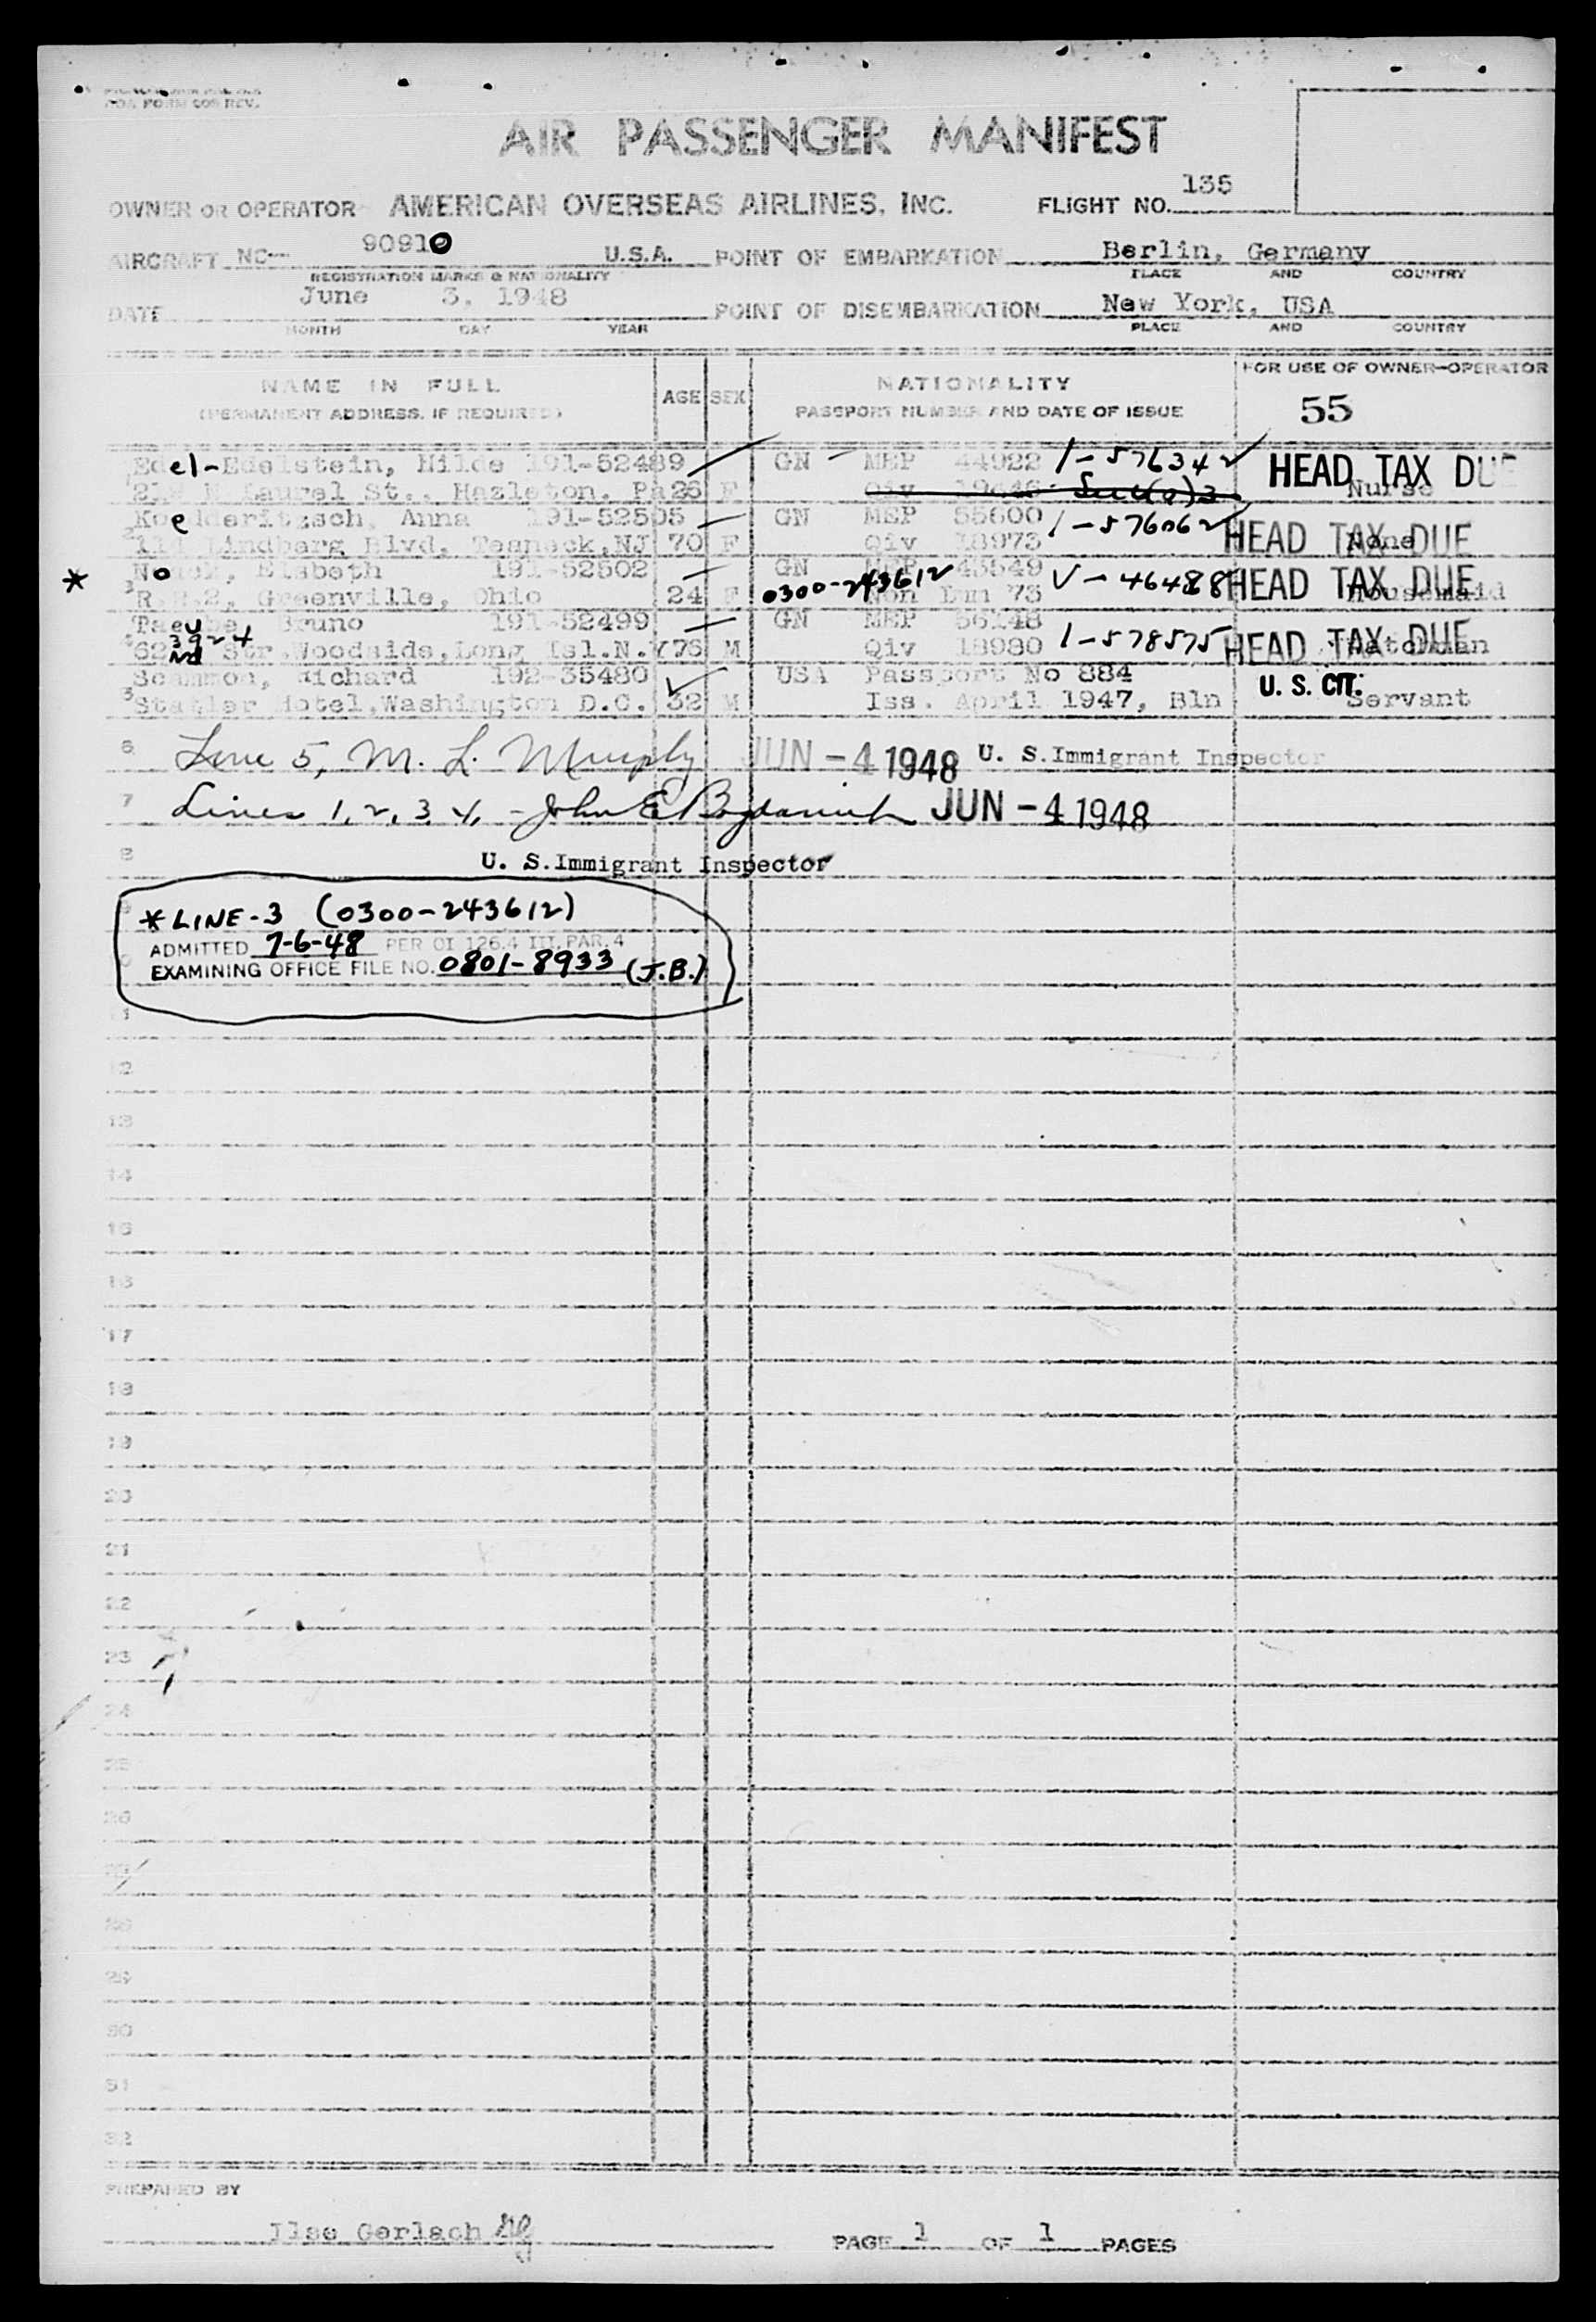 FORM 608 REV.
AIR PASSENGER MANIFEST
OWNER OR OPERATOR AMERICAN OVERSEAS AIRLINES, INC. FLIGHT NO. 135
AIRCRAFT NC— 90910 U.S.A. POINT OF EMBARKATION Berlin, Germany
REGISTRATION MARKS & NATIONALITY PLACE AND COUNTRY
DATE June 3, 1948 POINT OF DISEMBARKATION New York, USA
MONTH DAY YEAR PLACE AND COUNTRY
NAME IN FULL AGE SEX NATIONALITY FOR USE OF OWNER—OPERATOR
(PERMANENT ADDRESS, IF REQUIRED) PASSPORT NUMBER AND DATE OF ISSUE 55
1 Edel-Edelstein, Hilde 191-52489 GN MEP 44922 1-576342 HEAD TAX DUE
N Laurel St., Hazleton, Pa 26 F Qiv Nurse
2 191-52505 GN MEP 55600 1-576062 HEAD TAX DUE
Anna
114 Lindberg Blvd, Teaneck, NJ 70 F Qiv 18973 None
* 3 Elsbeth 191-52502 GN MEP 43549 V-464888 HEAD TAX DUE
R.R.2, Greenville, Ohio 24 F 0300-243612 Non Imm 73 Housemaid
4 Bruno 191-52499 GN MEP 56148 HEAD TAX DUE
39-24
62nd Str. Woodside, Long Isl. N.Y 76 M Qiv 18980 1-578575 Watchman
5 Scammon, Richard 192-35480 USA Passport No 884 U. S. CIT.
Statler Hotel, Washington D.C. 32 M Iss. April 1947, Bln Servant
6 Line 5, M. L. Murphy JUN -4 1948 U. S. Immigrant Inspector
7 Lines 1, 2, 3, 4, - John E JUN -4 1948
8 U. S. Immigrant Inspector
9 * LINE-3 (0300-243612)
10 ADMITTED 7-6-48 PER OI 126.4 III, PAR. 4
EXAMINING OFFICE FILE NO. 0801-8933 (J.B.)
11
12
13
14
15
16
17
18
19
20
21
22
23
24
25
26
27
28
29
30
31
32
PREPARED BY
Ilse Gerlach
PAGE 1 OF 1 PAGES